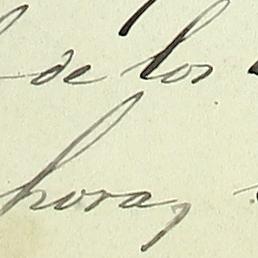 de los
hora,